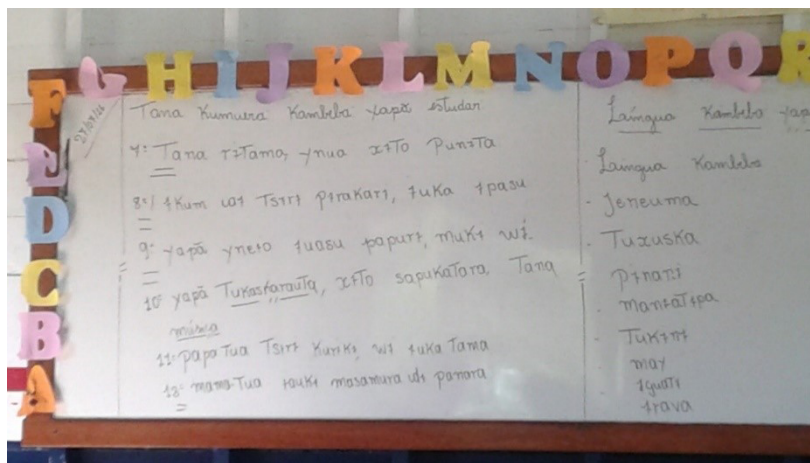 G H I J K L M N O P Q R
F
E
D
C
B
A
27/07/16
Tana Kumuera Kambeba yapã estudar
7= Tana rɨTama, ynua xɨTo PunɨTa
8= ɨKum Tsɨrɨ pɨrakarɨ, ɨuka ɨpasu
9= yapã yneto ɨuasu papurɨ, mukɨ wɨ
10= yapã Tukaskarauta, xɨTo sapukaTara, Tana
música
11= papa Tua Tsɨrɨ Kurɨkɨ, wɨ ɨuka Tama
12= mama Tua ɨaukɨ masamura panara
Laíngua Kambeba
Laíngua Kambeba
- Jeneuma
- Tuxuska
- Pɨnanɨ
- manɨaTɨpa
- Tukɨnɨ
- may
- ɨguatɨ
ɨrava